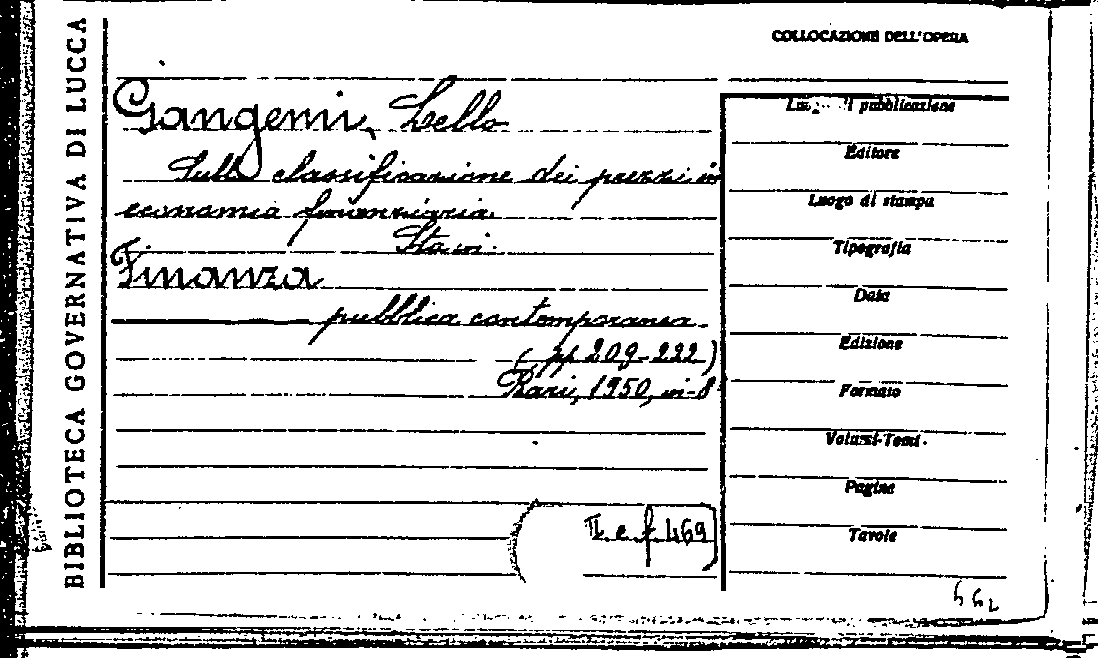 BIBLIOTECA GOVERNATIVA DI LUCCA
COLLOCAZIONE DELL'OPERA
Gangemi, Lello
Sulla classificazione dei prezzi in
economia finanziaria.
Sta in:
Finanza
pubblica contemporanea.
(pp 209-222)
Bari, 1950, in-8
II. e. f. 469
di pubblicazione
Editore
Luogo di stampa
Tipografia
Data
Edizione
Formato
Volumi-Tomi
Pagine
Tavole